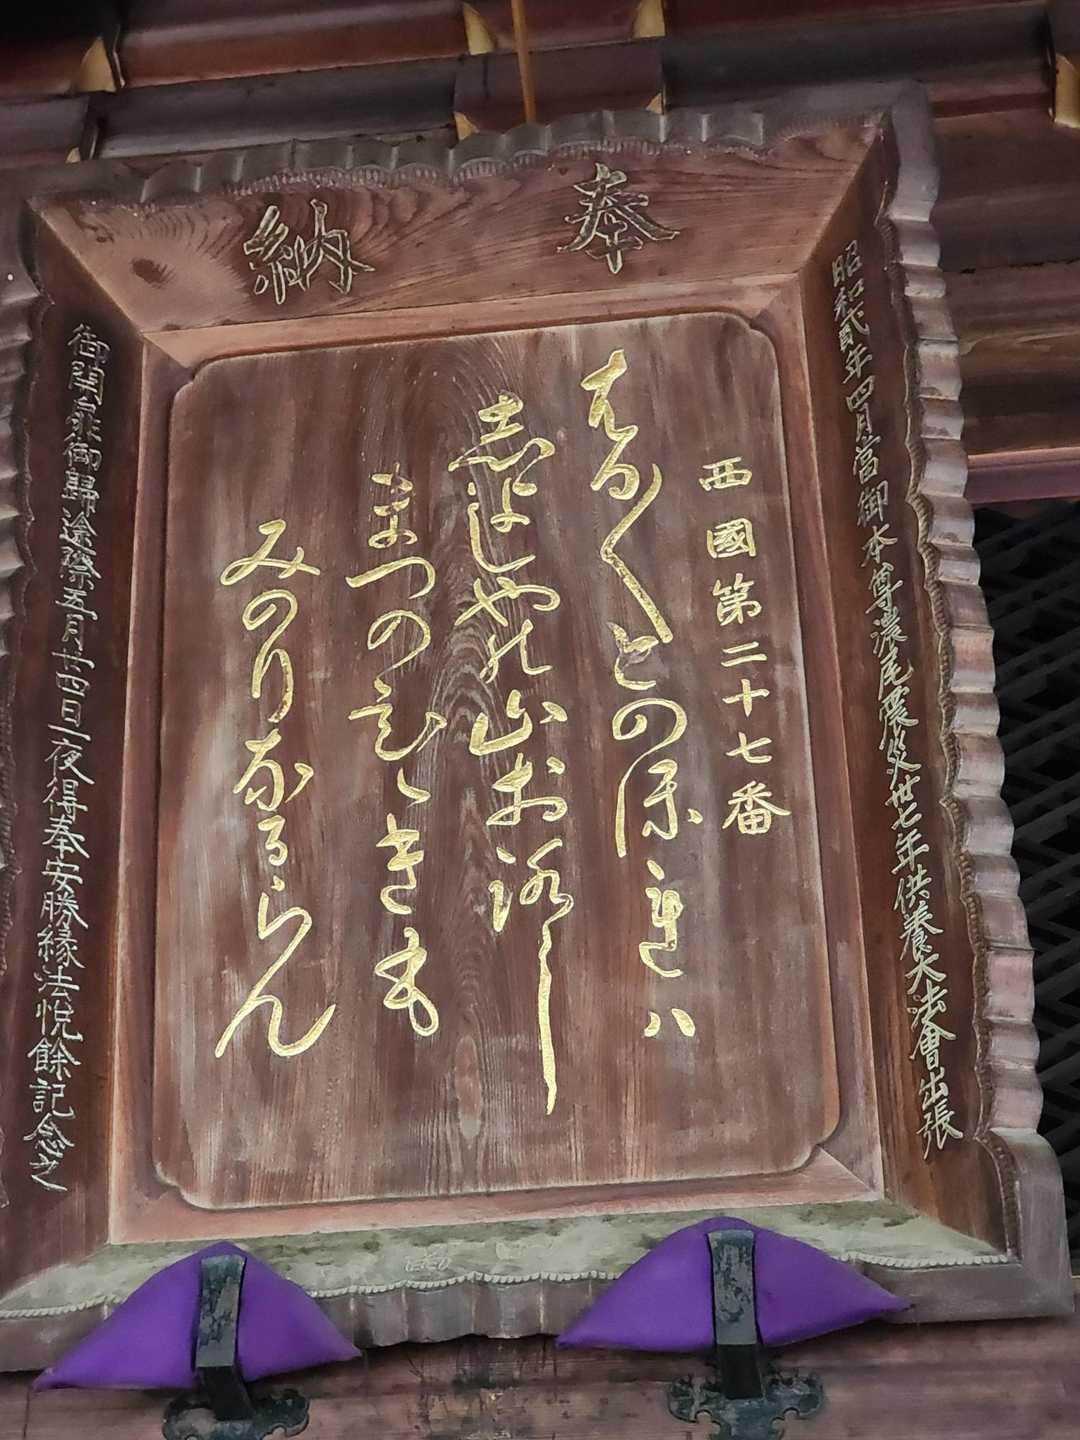 奉納
昭和貳年四月當御本尊濃尾震災丗七年供養大法會出張
西國第二十七番
はる〱とのほれハ
志よしやの山お路し
まつのひゝきも
みのりなるらん
御歸途際五月廿四日一夜得奉安勝縁法悦餘記念之